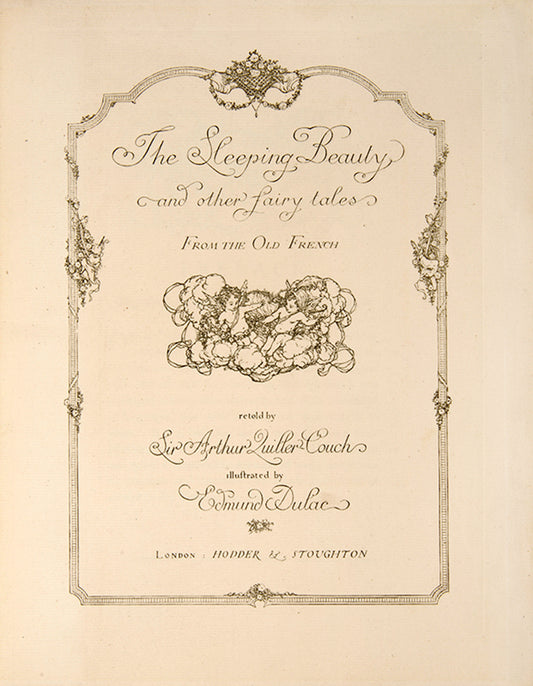 The Sleeping Beauty
and other fairy tales
FROM THE OLD FRENCH
retold by
Sir Arthur Quiller-Couch
illustrated by
Edmund Dulac
LONDON : HODDER & STOUGHTON